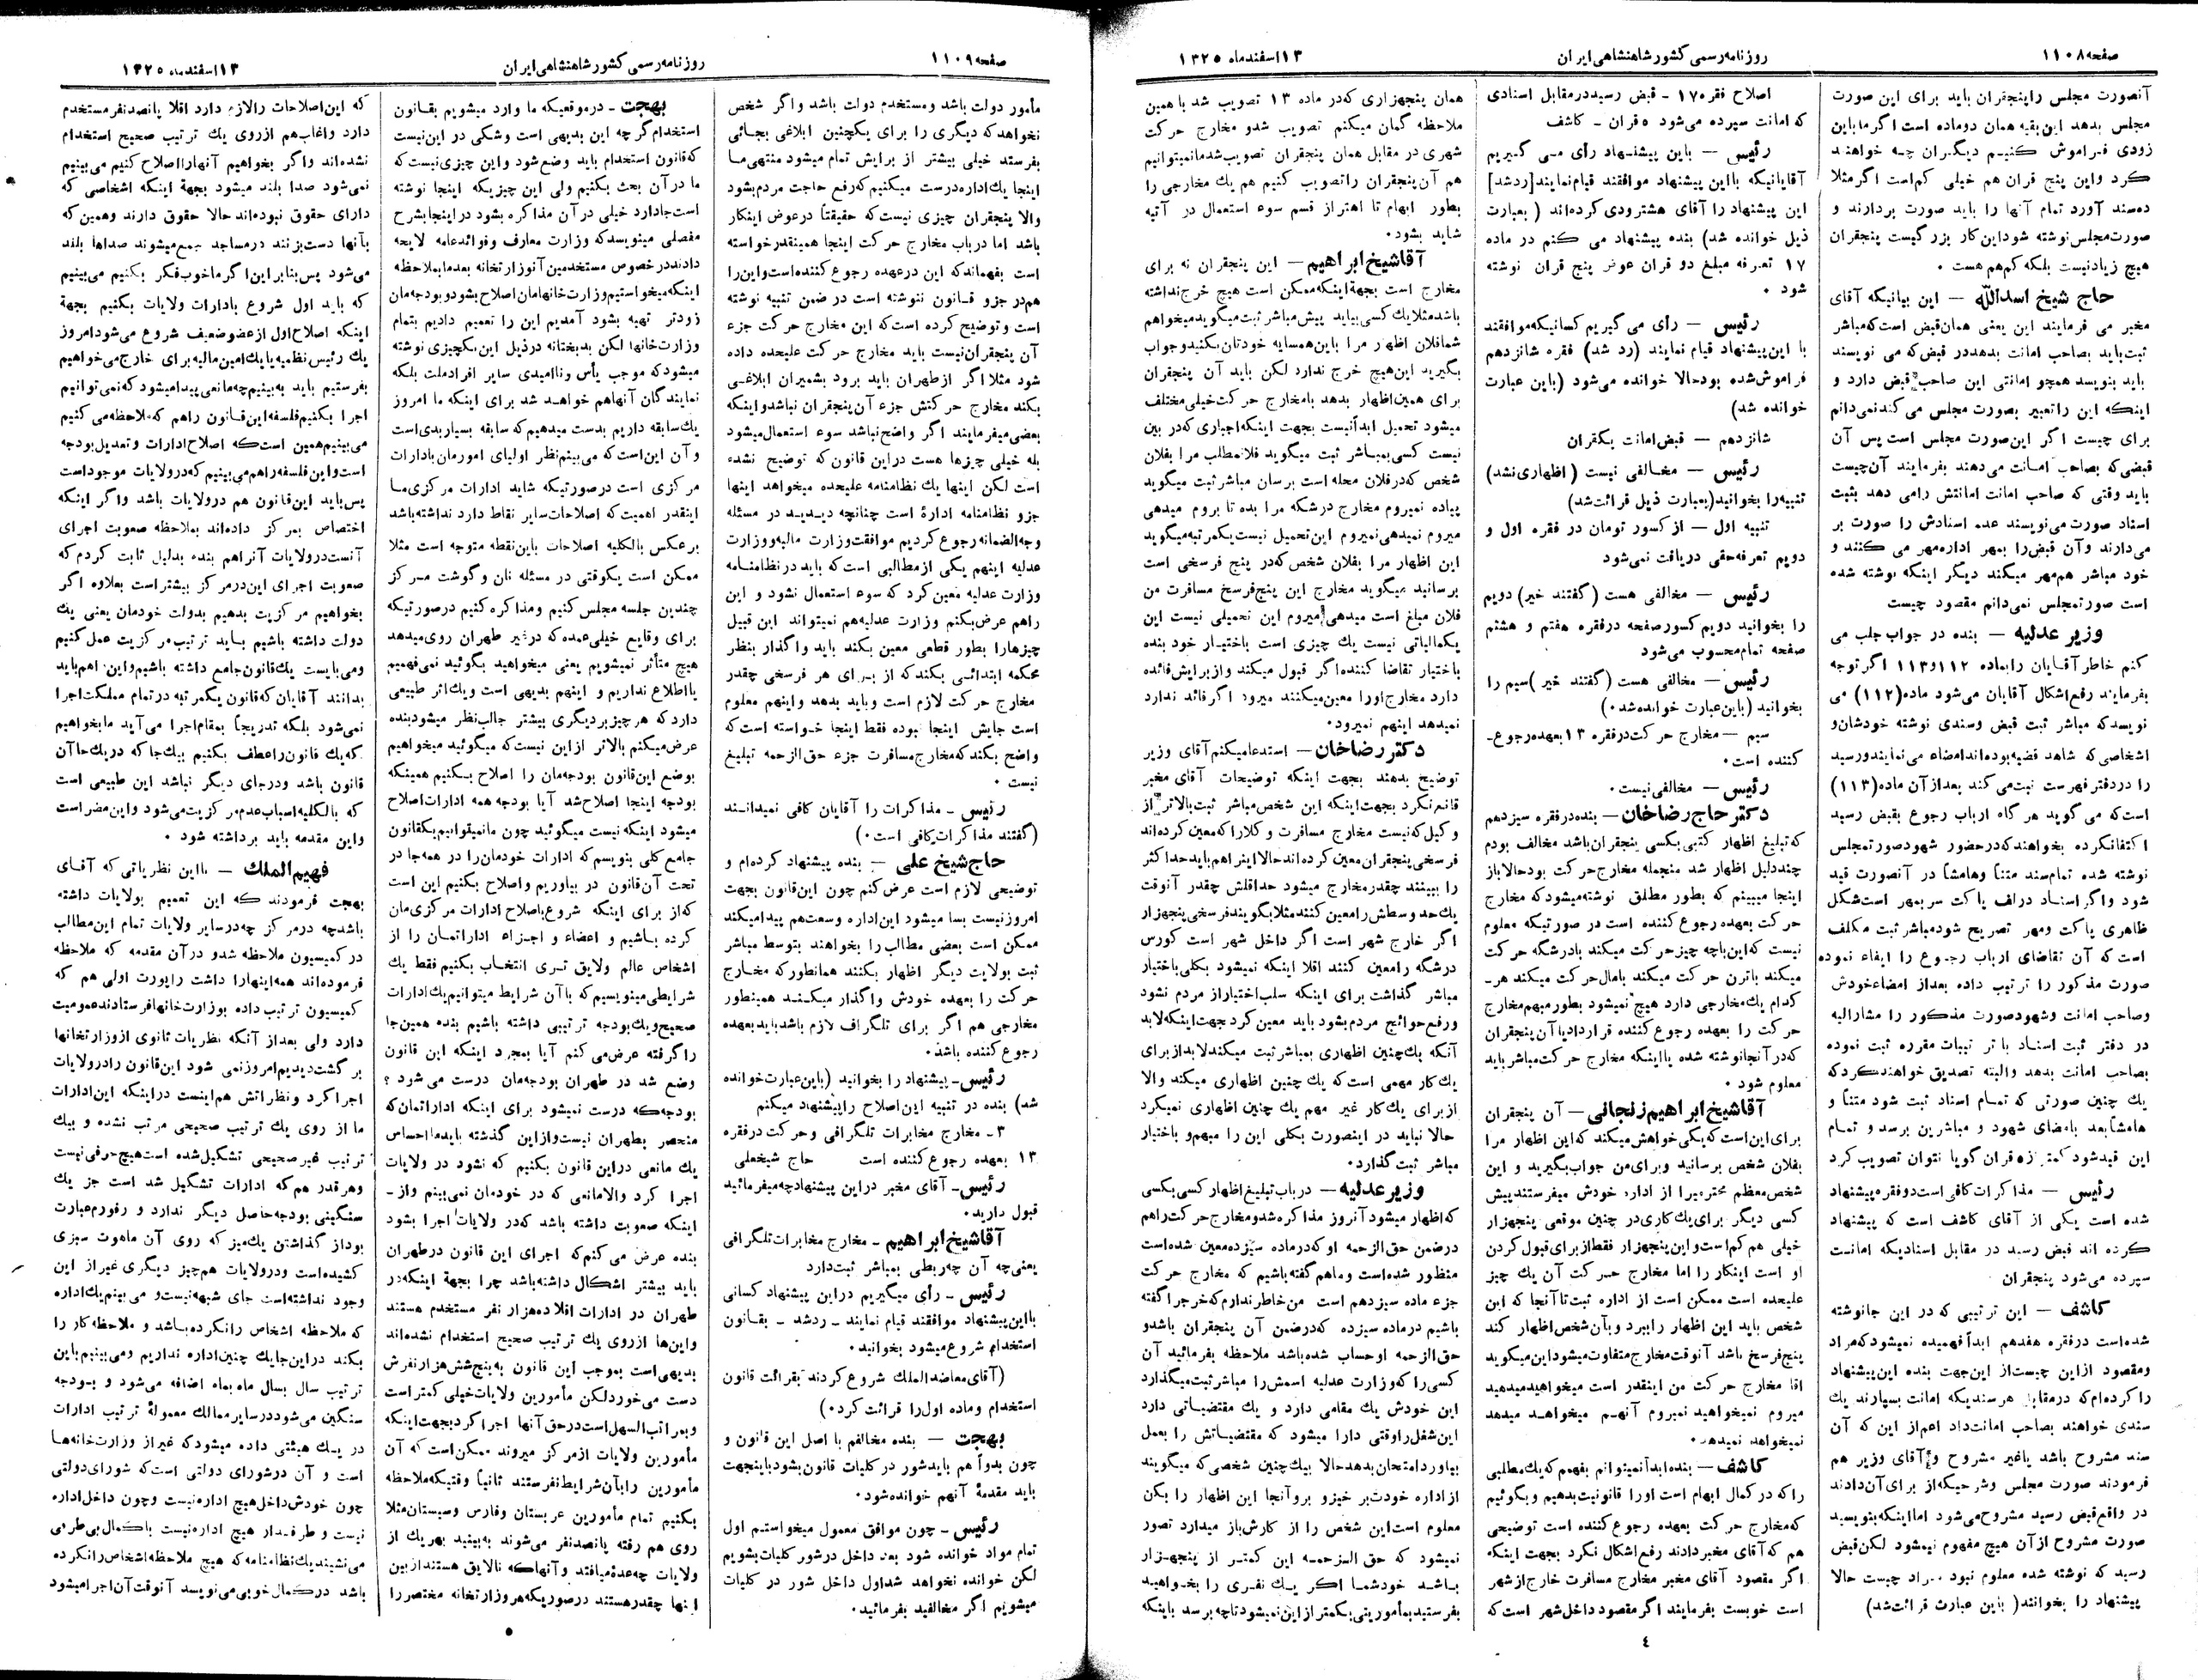 صفحه ۱۱۰۸
روزنامه رسمی کشور شاهنشاهی ایران
۱۳ اسفندماه ۱۳۲۵
آنصورت مجلس را پنجقران باید برای این صورت
مجلس بدهد این بقیه همان دوماده است اگر ما باین
زودی فراموش کنیم دیگران چه خواهند
کرد و این پنج قران هم خیلی کم است اگر مثلا
ده سند آورد تمام آنها را باید صورت بردارند و
صورت مجلس نوشته شود این کار بزرگیست پنجقران
هیچ زیاد نیست بلکه کم هم هست ۰
حاج شیخ اسدالله — این بیانیکه آقای
مخبر می فرمایند این یعنی همان قبض است که مباشر
ثبت باید بصاحب امانت بدهد در قبض که می نویسند
باید بنویسد همچو امانتی این صاحب قبض دارد و
اینکه این را تعبیر بصورت مجلس می کند نمی دانم
برای چیست اگر این صورت مجلس است پس آن
قبضی که بصاحب امانت می دهند بفرمایند آن چیست
باید وقتی که صاحب امانت امانتش را می دهد بثبت
اسناد صورت می نویسند عده اسنادش را صورت بر
می دارند و آن قبض را بمهر اداره مهر می کنند و
خود مباشر هم مهر میکند دیگر اینکه نوشته شده
است صورتمجلس نمی دانم مقصود چیست
وزیر عدلیه — بنده در جواب جلب می
کنم خاطر آقایان را بماده ۱۱۲ و ۱۱۳ اگر توجه
بفرمایند رفع اشکال آقایان می شود ماده (۱۱۲) می
نویسد که مباشر ثبت قبض و سندی نوشته خودشان و
اشخاصی که شاهد قضیه بوده اند امضاء می نمایند و رسید
را در دفتر فهرست ثبت می کند بعد از آن ماده (۱۱۳)
است که می گوید هر گاه ارباب رجوع بقبض رسید
اکتفا نکرده بخواهند که در حضور شهود صورتمجلس
نوشته شده تمام سند متناً و هامشاً در آنصورت قید
شود و اگر اسناد در لف پاکت سر بمهر است شکل
ظاهری پاکت و مهر تصریح شود مباشر ثبت مکلف
است که آن تقاضای ارباب رجوع را ایفاء نموده
صورت مذکور را ترتیب داده بعد از امضاء خودش
و صاحب امانت و شهود صورت مذکور را مشارالیه
در دفتر ثبت اسناد با ترتیبات مقرره ثبت نموده
بصاحب امانت بدهد والبته تصدیق خواهند کرد که
یك چنین صورتی که تمام اسناد ثبت شود متناً و
هامشاً بعد بامضای شهود و مباشرین برسد و تمام
این قید شود کمتر از ۵ قران گویا نتوان تصویب کرد
رئیس — مذاکرات کافی است دو فقره پیشنهاد
شده است یکی از آقای کاشف است که پیشنهاد
کرده اند قبض رسید در مقابل اسنادیکه امانت
سپرده می شود پنجقران
کاشف — این ترتیبی که در این جا نوشته
شده است در فقره هفدهم ابداً فهمیده نمیشود که مراد
و مقصود از این چیست از این جهت بنده این پیشنهاد
را کرده ام که در مقابل هر سندیکه امانت بسپارند یك
سندی خواهند بصاحب امانت داد اعم از این که آن
سند مشروح باشد یا غیر مشروح و آقای وزیر هم
فرمودند صورت مجلس و شرحیکه از برای آن دادند
در واقع قبض رسید مشروح می شود اما اینکه بنویسید
صورت مشروح از آن هیچ مفهوم نیمشود لکن قبض
رسید که نوشته شده معلوم نبود مراد چیست حالا
پیشنهاد را بخوانند ( باین عبارت قرائت شد)
اصلاح فقره ۱۷ - قبض رسید در مقابل اسنادی
که امانت سپرده می شود ۵ قران - کاشف
رئیس — باین پیشنهاد رأی می گیریم
آقایانیکه با این پیشنهاد موافقند قیام نمایند [رد شد]
این پیشنهاد را آقای هشترودی کرده اند ( بعبارت
ذیل خوانده شد) بنده پیشنهاد می کنم در ماده
۱۷ تعرفه مبلغ دو قران عوض پنج قران نوشته
شود ۰
رئیس — رأی می گیریم کسانیکه موافقند
با این پیشنهاد قیام نمایند (رد شد) فقره شانزدهم
فراموش شده بود حالا خوانده می شود (باین عبارت
خوانده شد)
شانزدهم — قبض امانت یکقران
رئیس — مخالفی نیست (اظهاری نشد)
تنبیه را بخوانید (بعبارت ذیل قرائت شد)
تنبیه اول — از کسور تومان در فقره اول و
دویم تعرفه حقی دریافت نمی شود
رئیس — مخالفی هست (گفتند خیر) دویم
را بخوانید دویم کسور صفحه در فقره هفتم و هشتم
صفحه تمام محسوب می شود
رئیس — مخالفی هست (گفتند خیر) سیم را
بخوانید (باین عبارت خوانده شد۰)
سیم — مخارج حرکت در فقره ۱۳ بعهده رجوع-
کننده است۰
رئیس — مخالفی نیست۰
دکتر حاج رضاخان — بنده در فقره سیزدهم
که تبلیغ اظهار کتبی بکسی پنجقران باشد مخالف بودم
چند دلیل اظهار شد منجمله مخارج حرکت بود حالا باز
اینجا میبینم که بطور مطلق نوشته میشود که مخارج
حرکت بعهده رجوع کننده است در صورتیکه معلوم
نیست که این با چه چیز حرکت میکند با درشگه حرکت
میکند با ترن حرکت میکند با مال حرکت میکند هر-
کدام یك مخارجی دارد هیچ نمیشود بطور مبهم مخارج
حرکت را بعهده رجوع کننده قرار داد یا آن پنجقران
که در آنجا نوشته شده یا اینکه مخارج حرکت مباشر باید
معلوم شود ۰
آقا شیخ ابراهیم زنجانی — آن پنجقران
برای این است که یکی خواهش میکند که این اظهار مرا
بفلان شخص برسانید و برای من جواب بگیرید و این
شخص معظم محترمیرا از اداره خودش میفرستند پیش
کسی دیگر برای یك کاری در چنین موقعی پنجهزار
خیلی هم کم است و این پنجهزار فقط از برای قبول کردن
او است اینکار را اما مخارج حرکت آن یك چیز
علیحده است ممکن است از اداره ثبت تا آنجا که این
شخص باید این اظهار را ببرد و بآن شخص اظهار کند
پنج فرسخ باشد آنوقت مخارج متفاوت میشود این میگوید
آقا مخارج حرکت من اینقدر است میخواهید میدهید
میروم نمیخواهید نمیروم آنهم میخواهد میدهد
نمیخواهد نمیدهد ۰
کاشف — بنده ابداً نمیتوانم بفهمم که یك مطلبی
را که در کمال ابهام است او را قانونیت بدهیم و بگوئیم
که مخارج حرکت بعهده رجوع کننده است توضیحی
هم که آقای مخبر دادند رفع اشکال نکرد بجهت اینکه
اگر مقصود آقای مخبر مخارج مسافرت خارج از شهر
است خوبست بفرمایند اگر مقصود داخل شهر است که
همان پنجهزاری که در ماده ۱۳ تصویب شد با همین
ملاحظه گمان میکنم تصویب شد و مخارج حرکت
شهری در مقابل همان پنجقران تصویب شد ما نمیتوانیم
هم آن پنجقران را تصویب کنیم هم یك مخارجی را
بطور ابهام تا اهتراز قسم سوء استعمال در آتیه
شاید بشود۰
آقا شیخ ابراهیم — این پنجقران نه برای
مخارج است بجهة اینکه ممکن است هیچ خرج نداشته
باشد مثلا یك کسی بیاید پیش مباشر ثبت میگوید میخواهم
شما فلان اظهار مرا باین همسایه خودتان بکنید و جواب
بگیرید این هیچ خرج ندارد لکن باید آن پنجقران
برای همین اظهار بدهد با مخارج حرکت خیلی مختلف
میشود تحمیل ابداً نیست بجهت اینکه اجباری که در بین
نیست کسی بمباشر ثبت میگوید فلان مطلب مرا بفلان
شخص که در فلان محله است برسان مباشر ثبت میگوید
پیاده نمیروم مخارج درشکه مرا بده تا بروم میدهی
میروم نمیدهی نمیروم این تحمیل نیست یکمرتبه میگوید
این اظهار مرا بفلان شخص که در پنج فرسخی است
برسانید میگوید مخارج این پنج فرسخ مسافرت من
فلان مبلغ است میدهی میروم این تحمیلی نیست این
یکمالیاتی نیست یك چیزی است باختیار خود بنده
باختیار تقاضا کننده اگر قبول میکند و از برایش فائده
دارد مخارج او را معین میکنند میرود اگر فائد ندارد
نمیدهد اینهم نمیرود۰
دکتر رضاخان — استدعا میکنم آقای وزیر
توضیح بدهند بجهت اینکه توضیحات آقای مخبر
قانع نکرد بجهت اینکه این شخص مباشر ثبت بالاتر از
وکیل که نیست مخارج مسافرت و کلا را که معین کرده اند
فرسخی پنجقران معین کرده اند حالا اینرا هم باید حداکثر
را ببینند چقدر مخارج میشود حداقلش چقدر آنوقت
یك حد وسطش را معین کنند مثلا بگویند فرسخی پنجهزار
اگر خارج شهر است اگر داخل شهر است کورس
درشگه را معین کنند اقلا اینکه نمیشود بکلی باختیار
مباشر گذاشت برای اینکه سلب اختیار از مردم نشود
و رفع حوائج مردم بشود باید معین کرد جهت اینکه لابد
آنکه یك چنین اظهاری بمباشر ثبت میکند لابد از برای
یك کار مهمی است که یك چنین اظهاری میکند والا
از برای یك کار غیر مهم یك چنین اظهاری نمیکرد
حالا نباید در اینصورت بکلی این را مبهم و باختیار
مباشر ثبت گذارد۰
وزیر عدلیه — در باب تبلیغ اظهار کسی بکسی
که اظهار میشود آنروز مذاکره شد و مخارج حرکت را هم
در ضمن حق الزحمه او که در ماده سیزده معین شده است
منظور شده است و ما هم گفته باشیم که مخارج حرکت
جزء ماده سیزدهم است من خاطر ندارم که خرج را گفته
باشیم در ماده سیزده که در ضمن آن پنجقران باشد و
حق الزحمه او حساب شده باشد ملاحظه بفرمائید آن
کسی را که وزارت عدلیه اسمش را مباشر ثبت میگذارد
این خودش یك مقامی دارد و یك مقتضیاتی دارد
این شغل را وقتی دارا میشود که مقتضیاتش را بعمل
بیاورد امتحان بدهد حالا بیك چنین شخصی که میگویند
از اداره خودت بر خیز و برو آنجا این اظهار را بکن
معلوم است این شخص را از کارش باز میدارد تصور
نمیشود که حق الزحمه این کمتر از پنجهزار
باشد خود شما اگر یك نفری را بخواهید
بفرستید بمأموریتی بکمتر از این نمیشود تا چه برسد باینکه
٤
صفحه ۱۱۰۹
روزنامه رسمی کشور شاهنشاهی ایران
۱۳ اسفندماه ۱۳۲۵
مأمور دولت باشد و مستخدم دولت باشد و اگر شخص
نخواهد که دیگری را برای یکچنین ابلاغی بجائی
بفرستد خیلی بیشتر از برایش تمام میشود منتهی ما
اینجا یك اداره درست میکنیم که رفع حاجت مردم بشود
والا پنجقران چیزی نیست که حقیقتاً در عوض اینکار
باشد اما در باب مخارج حرکت اینجا همینقدر خواسته
است بفهماند که این در عهده رجوع کننده است و این را
هم در جزو قانون ننوشته است در ضمن تنبیه نوشته
است و توضیح کرده است که این مخارج حرکت جزء
آن پنجقران نیست باید مخارج حرکت علیحده داده
شود مثلا اگر از طهران باید برود بشمیران ابلاغی
بکند مخارج حرکتش جزء آن پنجقران نباشد و اینکه
بعضی میفرمایند اگر واضح نباشد سوء استعمال میشود
بله خیلی چیزها هست در این قانون که توضیح نشده
است لکن اینها یك نظامنامه علیحده میخواهد اینها
جزو نظامنامه ادارهٔ است چنانچه دیدید در مسئله
وجه الضمانه رجوع کردیم موافقت وزارت مالیه و وزارت
عدلیه اینهم یکی از مطالبی است که باید در نظامنامه
وزارت عدلیه معین کرد که سوء استعمال نشود و این
را هم عرض بکنم وزارت عدلیه هم نمیتواند این قبیل
چیزها را بطور قطعی معین بکند باید واگذار بنظر
محکمه ابتدائی بکند که از برای هر فرسخی چقدر
مخارج حرکت لازم است و باید بدهد و اینهم معلوم
است جایش اینجا نبوده فقط اینجا خواسته است که
واضح بکند که مخارج مسافرت جزء حق الزحمه تبلیغ
نیست ۰
رئیس - مذاکرات را آقایان کافی نمیدانند
(گفتند مذاکرات کافی است۰)
حاج شیخ علی — بنده پیشنهاد کرده ام و
توضیحی لازم است عرض کنم چون این قانون بجهت
امروز نیست بسا میشود این اداره وسعت هم پیدا میکند
ممکن است بعضی مطالب را بخواهند بتوسط مباشر
ثبت بولایت دیگر اظهار بکنند همانطور که مخارج
حرکت را بعهده خودش واگذار میکنند همینطور
مخارجی هم اگر برای تلگراف لازم باشد باید بعهده
رجوع کننده باشد۰
رئیس - پیشنهاد را بخوانید (باین عبارت خوانده
شد) بنده در تنبیه این اصلاح را پیشنهاد میکنم
۳ - مخارج مخابرات تلگرافی و حرکت در فقره
۱۳ بعهده رجوع کننده است حاج شیخعلی
رئیس - آقای مخبر در این پیشنهاد چه میفرمائید
قبول دارید۰
آقا شیخ ابراهیم - مخارج مخابرات تلگرافی
یعنی چه آن چه ربطی بمباشر ثبت دارد
رئیس - رأی میگیریم در این پیشنهاد کسانی
با این پیشنهاد موافقند قیام نمایند - رد شد - بقانون
استخدام شروع میشود بخوانید۰
(آقای معاضد الملك شروع کردند بقرائت قانون
استخدام و ماده اول را قرائت کرد۰)
بهجت — بنده مخالفم با اصل این قانون و
چون بدواً هم باید شور در کلیات قانون بشود باینجهت
باید مقدمهٔ آنهم خوانده شود۰
رئیس - چون موافق معمول میخواستم اول
تمام مواد خوانده شود بعد داخل در شور کلیات بشویم
لکن خوانده نخواهد شد اول داخل شور در کلیات
میشویم اگر مخالفید بفرمائید۰
بهجت - در موقعیکه ما وارد میشویم بقانون
استخدام گر چه این بدیهی است و شکی در این نیست
که قانون استخدام باید وضع شود و این چیزی نیست که
ما در آن بحث بکنیم ولی این چیزیکه اینجا نوشته
است جا دارد خیلی در آن مذاکره بشود در اینجا بشرح
مفصلی مینویسد که وزارت معارف و فوائد عامه لایحه
دادند در خصوص مستخدمین آنوزارتخانه بعد ما بملاحظه
اینکه میخواستیم وزارت خانهامان اصلاح بشود و بودجه مان
زودتر تهیه بشود آمدیم این را تعمیم دادیم بتمام
وزارت خانها لکن بدبختانه در ذیل این یکچیزی نوشته
میشود که موجب یأس و ناامیدی سایر افراد ملت بلکه
نمایندگان آنها هم خواهد شد برای اینکه ما امروز
یك سابقه داریم بدست میدهیم که سابقه بسیار بدی است
و آن این است که می بینم نظر اولیای امورمان بادارات
مرکزی است در صورتیکه شاید ادارات مرکزی ما
اینقدر اهمیت که اصلاحات سایر نقاط دارد نداشته باشد
بر عکس بالکلیه اصلاحات باین نقطه متوجه است مثلا
ممکن است یکوقتی در مسئله نان و گوشت مرکز
چندین جلسه مجلس کنیم و مذاکره کنیم در صورتیکه
برای وقایع خیلی عمده که در غیر طهران روی میدهد
هیچ متأثر نمیشویم یعنی میخواهید بگوئید نمی فهمیم
یا اطلاع نداریم و اینهم بدیهی است و یك اثر طبیعی
دارد که هر چیز بر دیگری بیشتر جالب نظر میشود بنده
عرض میکنم بالاتر از این نیست که میگوئید میخواهیم
بوضع این قانون بودجه مان را اصلاح بکنیم همینکه
بودجه اینجا اصلاح شد آیا بودجه همه ادارات اصلاح
میشود اینکه نیست میگوئید چون ما نمیتوانیم یکقانون
جامع کلی بنویسم که ادارات خودمان را در همه جا در
تحت آن قانون در بیاوریم و اصلاح بکنیم این است
که از برای اینکه شروع باصلاح ادارات مرکزی مان
کرده باشیم و اعضاء و اجزاء اداراتمان را از
اشخاص عالم ولایق تری انتخاب بکنیم فقط یك
شرایطی مینویسیم که با آن شرایط میتوانیم یك ادارات
صحیح و یك بودجه ترتیبی داشته باشیم بنده همین جا
را گرفته عرض می کنم آیا بمجرد اینکه این قانون
وضع شد در طهران بودجه مان درست می شود ؟
بودجه که درست نمیشود برای اینکه اداراتمان که
منحصر بطهران نیست و از این گذشته باید ما احساس
یك مانعی در این قانون بکنیم که نشود در ولایات
اجرا کرد والا مانعی که در خودمان نمی بینم و از -
اینکه صعوبت داشته باشد که در ولایات اجرا بشود
بنده عرض می کنم که اجرای این قانون در طهران
باید بیشتر اشکال داشته باشد چرا بجهة اینکه در
طهران در ادارات اقلا ده هزار نفر مستخدم هستند
و این ها از روی یك ترتیب صحیح استخدام نشده اند
بدیهی است بموجب این قانون به پنج شش هزار نفرش
دست می خورد لکن مأمورین ولایات خیلی کمتر است
و بمراتب السهل است در حق آنها اجرا گردد بجهت اینکه
مأمورین ولایات از مرکز میروند ممکن است که آن
مأمورین را بآن شرایط نفرستند ثانیاً وقتیکه ملاحظه
بکنیم تمام مأمورین عربستان و فارس و سیستان مثلا
روی هم رفته پانصد نفر می شوند به بینید بهر یك از
ولایات چه عدهٔ میافتد و آنها که نالایق هستند از بین
اینها چقدر هستند در صورتیکه هر وزارتخانه مختصر را
که این اصلاحات را لازم دارد اقلا پانصد نفر مستخدم
دارد و اغلب هم از روی یك ترتیب صحیح استخدام
نشده اند و اگر بخواهیم آنها را اصلاح کنیم می بینیم
نمی شود صدا بلند میشود بجهة اینکه اشخاصی که
دارای حقوق نبوده اند حالا حقوق دارند و همین که
بآنها دست بزنند در مساجد جمع میشوند صداها بلند
می شود پس بنابر این اگر ما خوب فکر بکنیم می بینیم
که باید اول شروع بادارات ولایات بکنیم بجهة
اینکه اصلاح اول از عضو ضعیف شروع می شود امروز
یك رئیس نظمیه یا یك امین مالیه برای خارج می خواهیم
بفرستیم باید به بینیم چه مانعی پیدا میشود که نمی توانیم
اجرا بکنیم فلسفه این قانون را هم که ملاحظه می کنیم
می بینیم همین است که اصلاح ادارات و تعدیل بودجه
است و این فلسفه را هم می بینیم که در ولایات موجود است
پس باید این قانون هم در ولایات باشد و اگر اینکه
اختصاص بمرکز داده اند بملاحظه صعوبت اجرای
آنست در ولایات آنرا هم بنده بدلیل ثابت کردم که
صعوبت اجرای این در مرکز بیشتر است بعلاوه اگر
بخواهیم مرکزیت بدهیم بدولت خودمان یعنی یك
دولت داشته باشیم باید ترتیب مرکزیت عمل کنیم
و می بایست یك قانون جامع داشته باشیم و این را هم باید
بدانند آقایان که قانون یکمرتبه در تمام مملکت اجرا
نمی شود بلکه تدریجاً بمقام اجرا می آید ما بخواهیم
که یك قانون را عطف بکنیم بیك جا که در یك جا آن
قانون باشد و در جای دیگر نباشد این طبیعی است
که بالکلیه اسباب عدم مرکزیت می شود و این مضر است
و این مقدمه باید برداشته شود ۰
فهیم الملك — با این نظریاتی که آقای
بهجت فرمودند که این تعمیم بولایات داشته
باشد چه در مرکز چه در سایر ولایات تمام این مطالب
در کمیسیون ملاحظه شد و در آن مقدمه که ملاحظه
فرموده اند همه اینها را داشت راپورت اولی هم که
کمیسیون ترتیب داده بوزارت خانها فرستادند عمومیت
دارد ولی بعد از آنکه نظریات ثانوی از وزارتخانها
بر گشت دیدیم امروز نمی شود این قانون را در ولایات
اجرا کرد و نظراتش هم اینست در اینکه این ادارات
ما از روی یك ترتیب صحیحی مرتب نشده و بیك
ترتیب غیر صحیحی تشکیل شده است هیچ حرفی نیست
و هر قدر هم که ادارات تشکیل شد است جز یك
سنگینی بودجه حاصل دیگر ندارد و رفورم عبارت
بود از گذاشتن یك میز که روی آن ماهوت سبزی
کشیده است و در ولایات هم چیز دیگری غیر از این
وجود نداشته است جای شبهه نیست و می بینم یك اداره
که ملاحظه اشخاص را نکرده باشد و ملاحظه کار را
بکند در این جا یك چنین اداره نداریم و می بینیم باین
ترتیب سال بسال ماه بماه اضافه می شود و بودجه
سنگین می شود در سایر ممالك معمولهٔ ترتیب ادارات
در یك هیئتی داده میشود که غیر از وزارت خانه ها
است و آن در شورای دولتی است که شورای دولتی
چون خودش داخل هیچ اداره نیست و چون داخل اداره
نیست و طرفدار هیچ اداره نیست با کمال بی طرفی
می نشیند یك نظامنامه که هیچ ملاحظه اشخاص را نکرده
باشد در کمال خوبی می نویسد آنوقت آن اجرا میشود